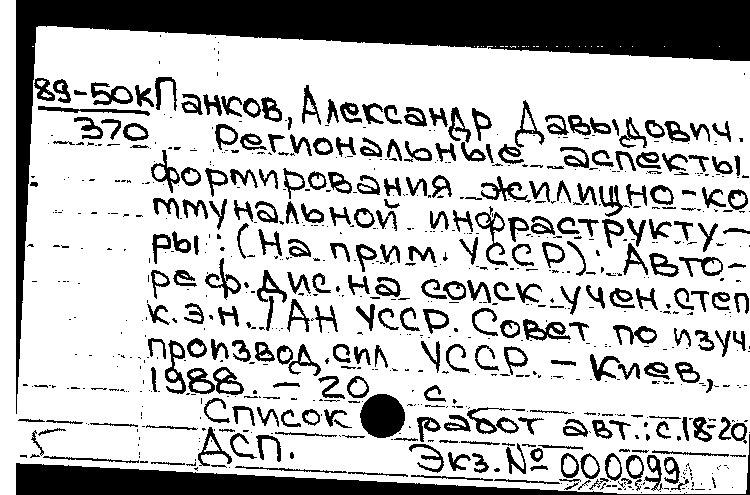 89-50К Панков, Александр Давыдович.
370 Региональные аспекты
формирования жилищно-ко
ммунальной инфраструкту-
ры : (На прим. УССР) : Авто-
реф. дис. на соиск. учен. степ
к.э.н. / АН УССР. Совет по изуч.
производ. сил УССР. - Киев,
1988. - 20 с.
Список работ авт.: с.18-20
ДСП. Экз. № 000099